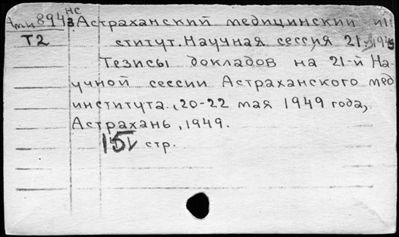 нс
8943 Астраханский медицинский ин
Т2 ститут. Научная сессия 21, 1949
Тезисы докладов на 21-й На-
учной сессии Астраханского мед
института, 20-22 мая 1949 года,
Астрахань, 1949.
151 стр.